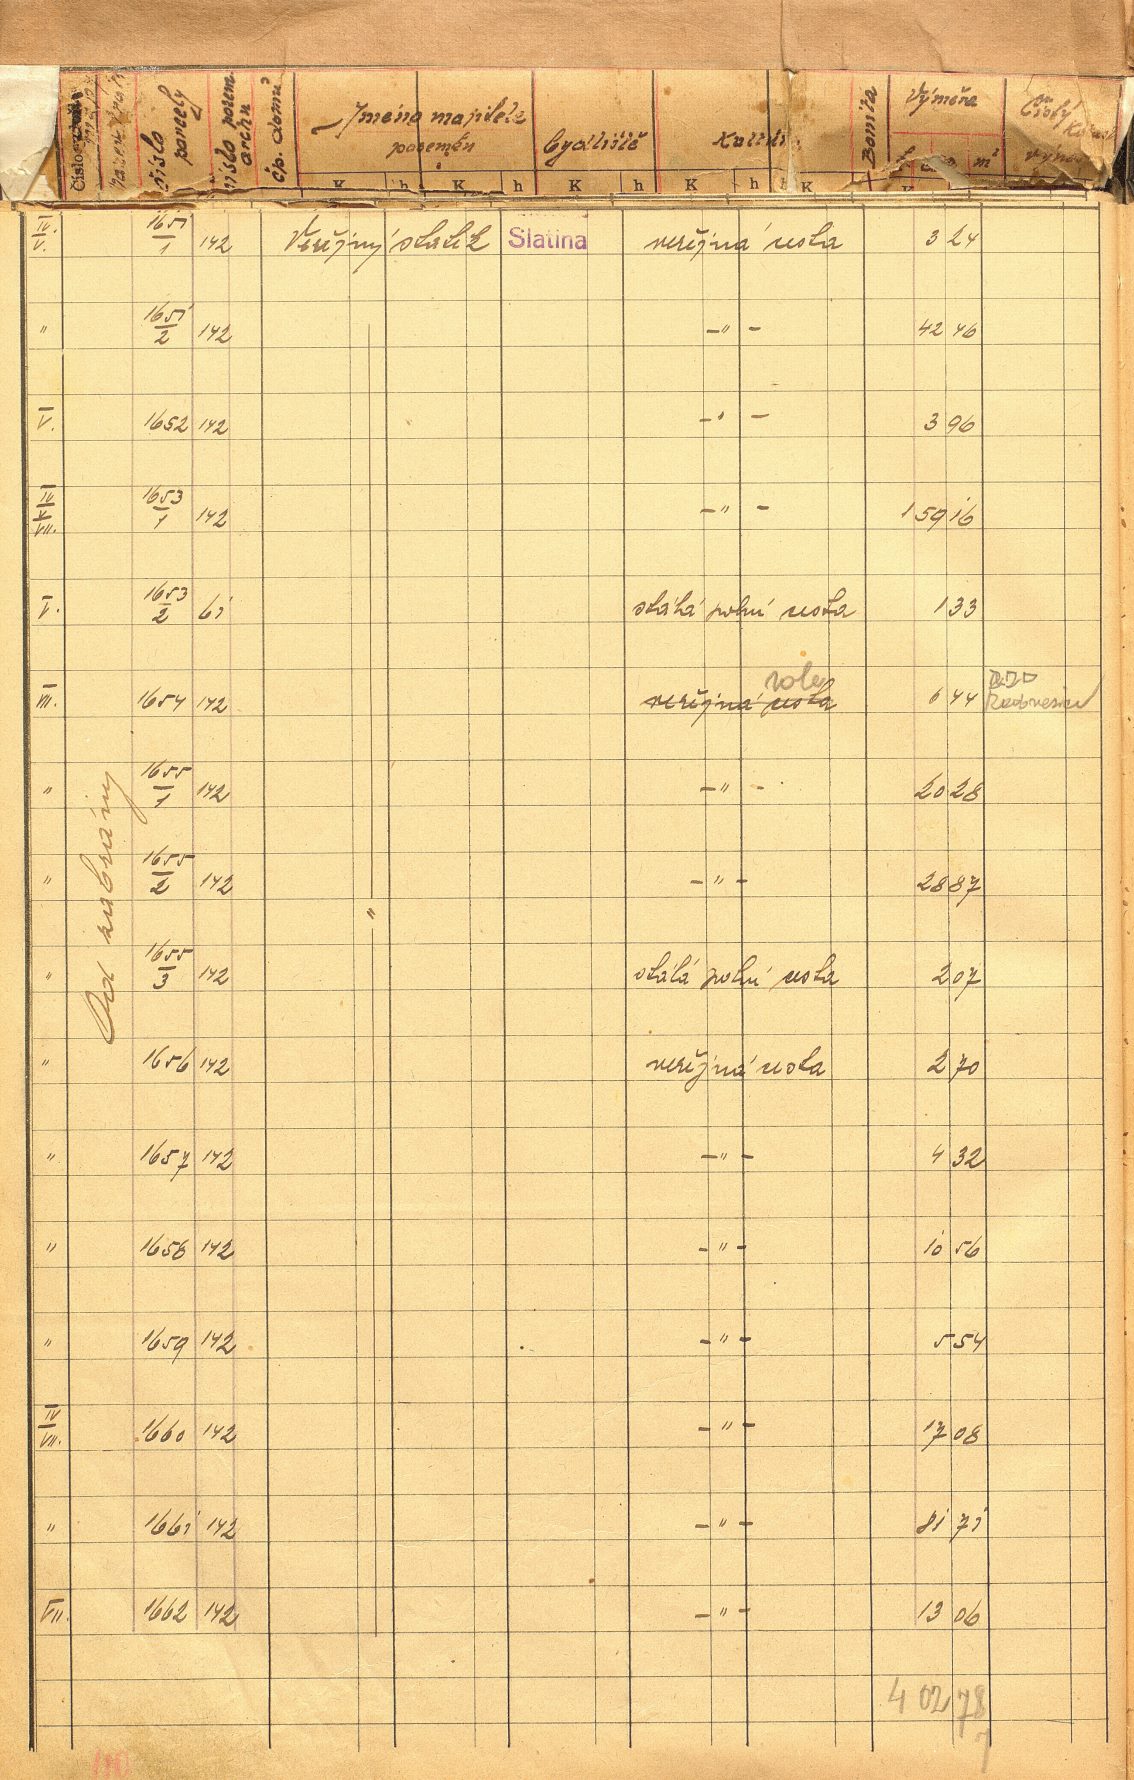 číslo parcely
číslo pozem. archu
čp. domu
Jméno majitele pozemku
Bydliště
Bonita
Výměra
m²
Čistý
K h K h K h K h K
IV. V. 1651/1 142 Veřejný statek Slatina veřejná cesta 3 24
" 1651/2 142 -"- 42 46
V. 1652 142 -"- 3 96
IV V VII. 1653/1 142 -"- 1 59 16
V. 1653/2 61 stálá polní cesta 1 33
role
VII. 1654 142 veřejná cesta 6 44
" 1655/1 142 -"- 20 28
" 1655/2 142 -"- 28 87
"
" 1655/3 142 stálá polní cesta 2 07
" 1656 142 veřejná cesta 2 70
" 1657 142 -"- 4 32
" 1658 142 -"- 10 56
" 1659 142 -"- 5 54
IV VII. 1660 142 -"- 17 08
" 1661 142 -"- 81 71
VII. 1662 142 -"- 13 06
Od zabrány
4 02 78
7
110